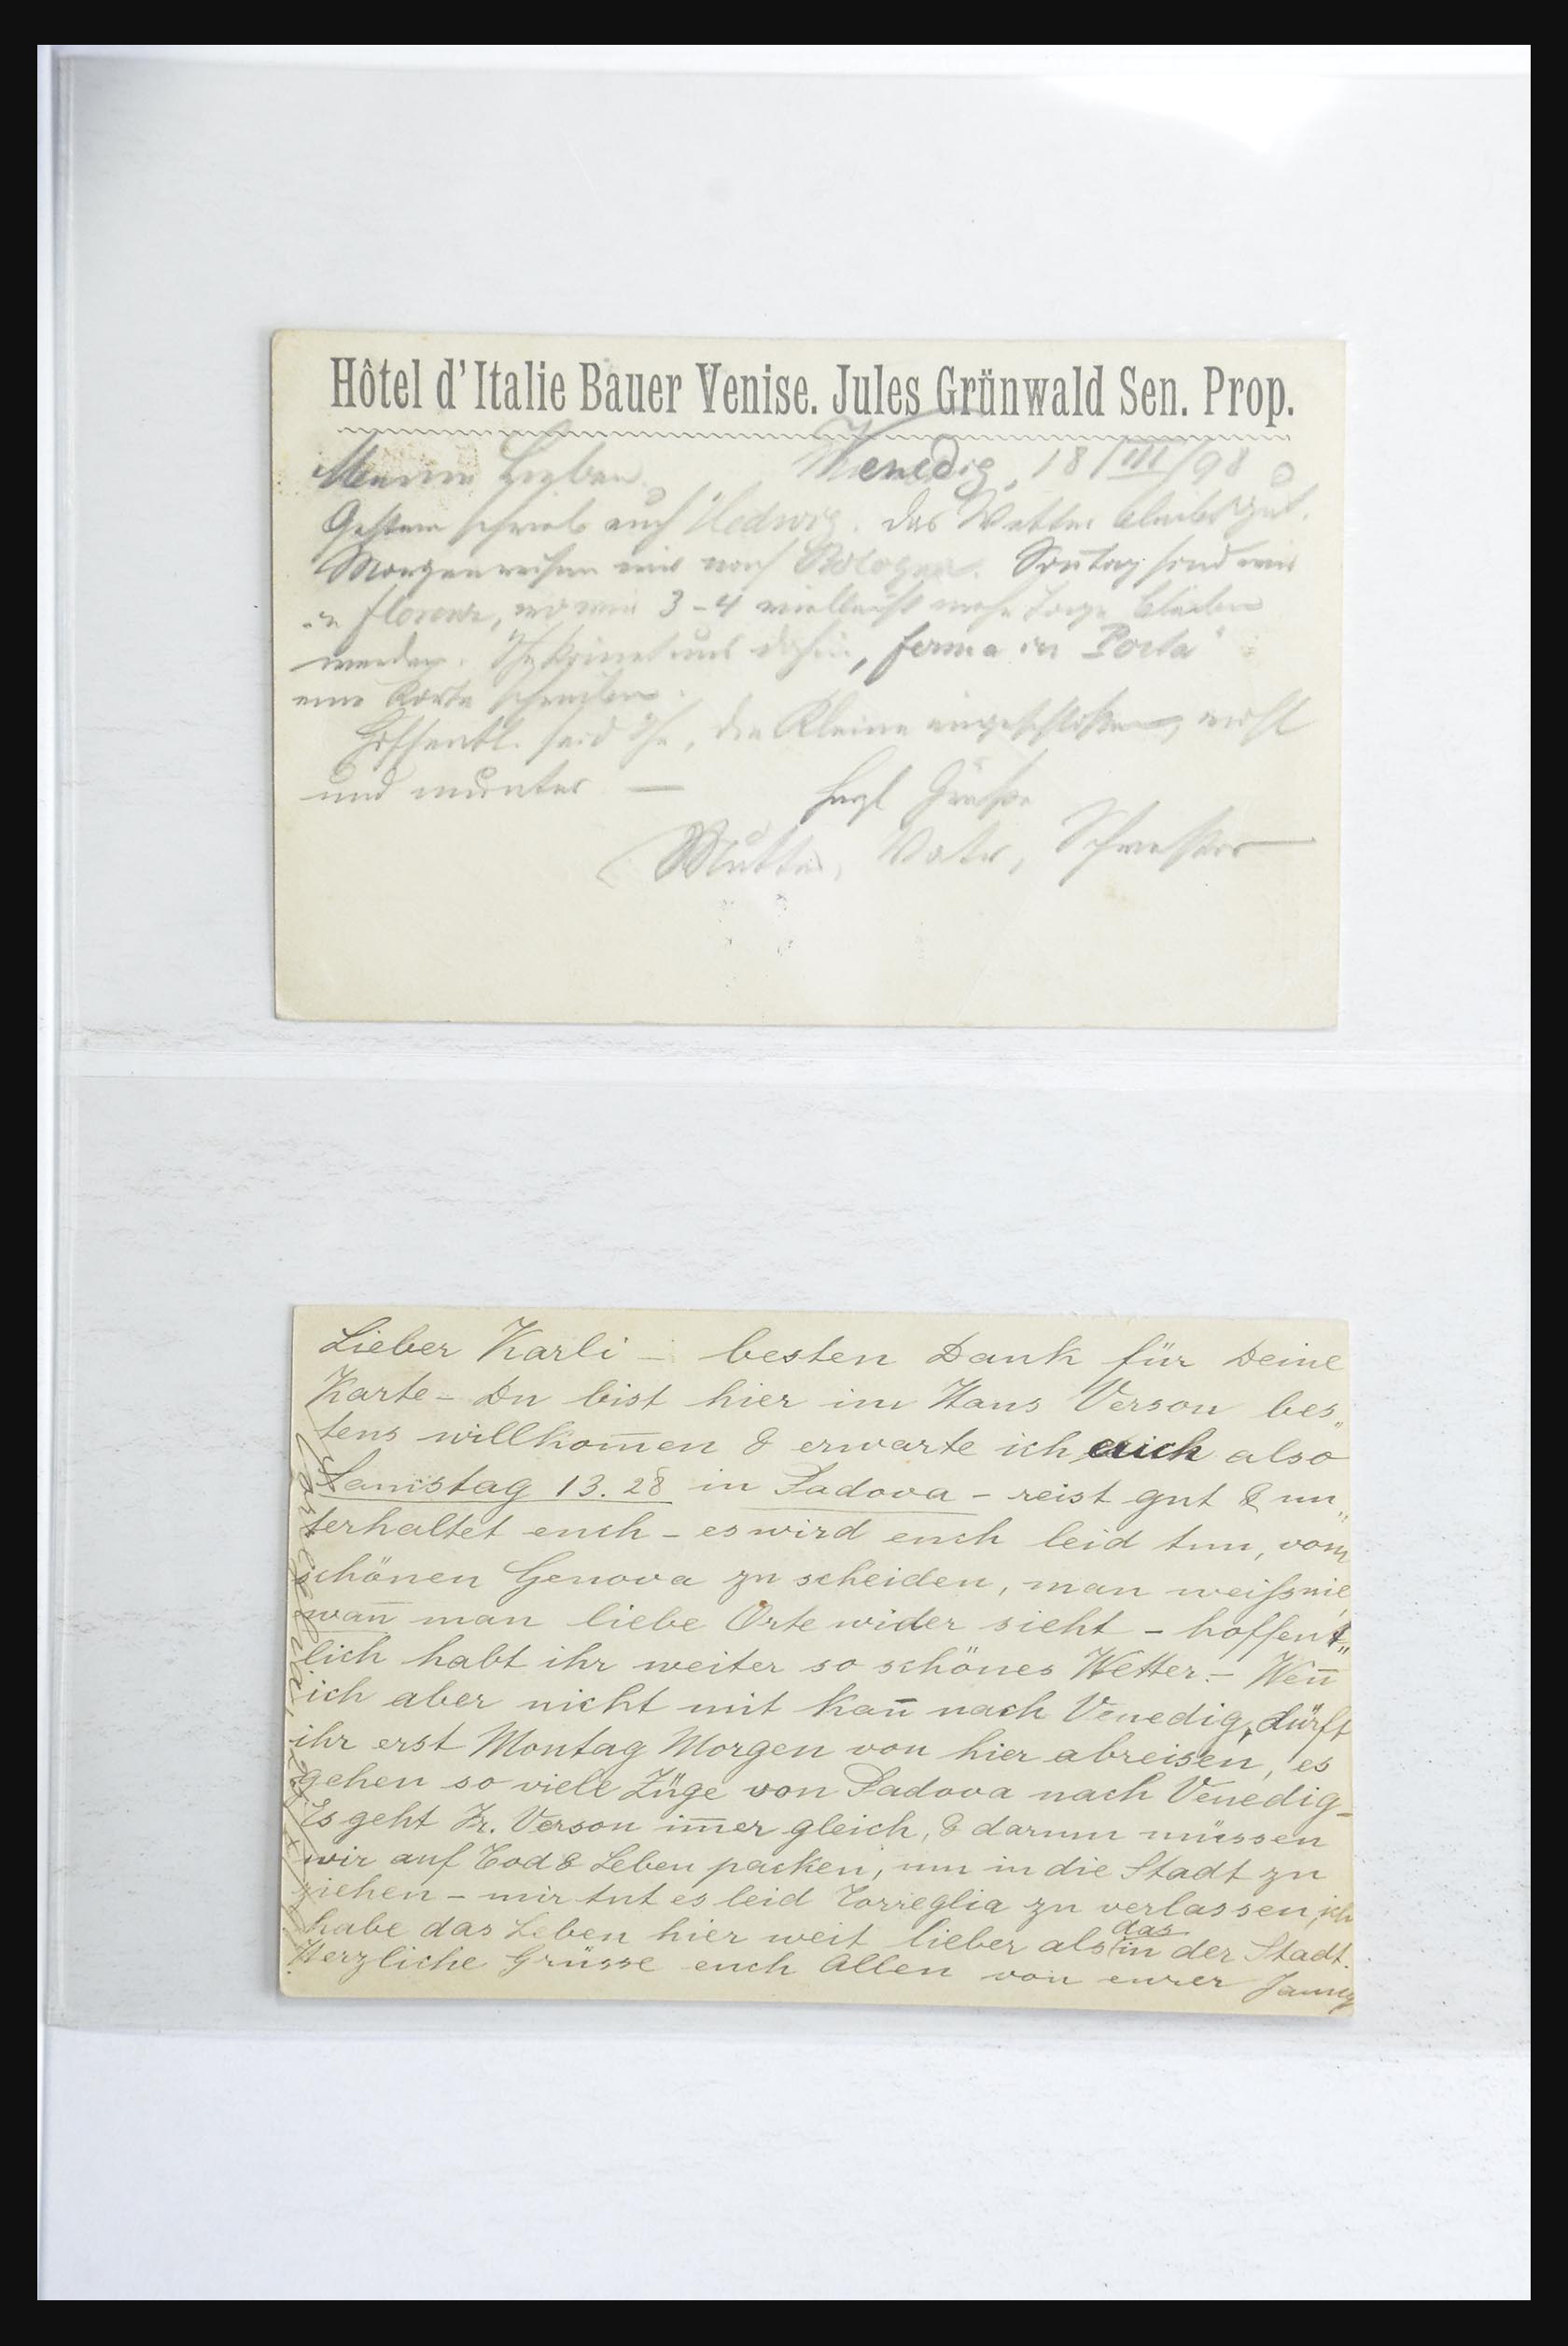 Hôtel d'Italie Bauer Venise. Jules Grünwald Sen. Prop.
Meine Lieben Venedig, 18/III/98
Gestern schrieb auch Hedwig. Das Wetter bleibt gut.
Morgen reisen wir nach Bologna. Son̄tag sind wir
in Florenz, wo wir 3-4 vielleicht mehr Tage bleiben
werden. Ihr könnet uns dahin, "ferma in Posta"
eine Karte schreiben.
Hoffentl. seid Ihr, die Kleine eingeschlossen, wohl
und munter —
Herzl Grüße
Mutter, Vater, Schwester
Lieber Karli - besten Dank für Deine
Karte - Du bist hier im Haus Verson bes„
tens willkom̄en & erwarte ich euch also
Samstag 13. 28 in Padova - reist gut & un„
terhaltet euch - es wird euch leid tun, vom
schönen Genova zu scheiden, man weiß nie,
wan̄ man liebe Orte wider sieht - hoffent„
lich habt ihr weiter so schönes Wetter. - Wen̄
ich aber nicht mit kan̄ nach Venedig, dürft
ihr erst Montag Morgen von hier abreisen, es
gehen so viele Züge von Padova nach Venedig -
Es geht Fr. Verson im̄er gleich, & darum müssen
wir auf Tod & Leben packen, um in die Stadt zu
ziehen - mir tut es leid Torreglia zu verlassen, ich
habe das Leben hier weit lieber als das in der Stadt.
Herzliche Grüsse euch Allen von eurer